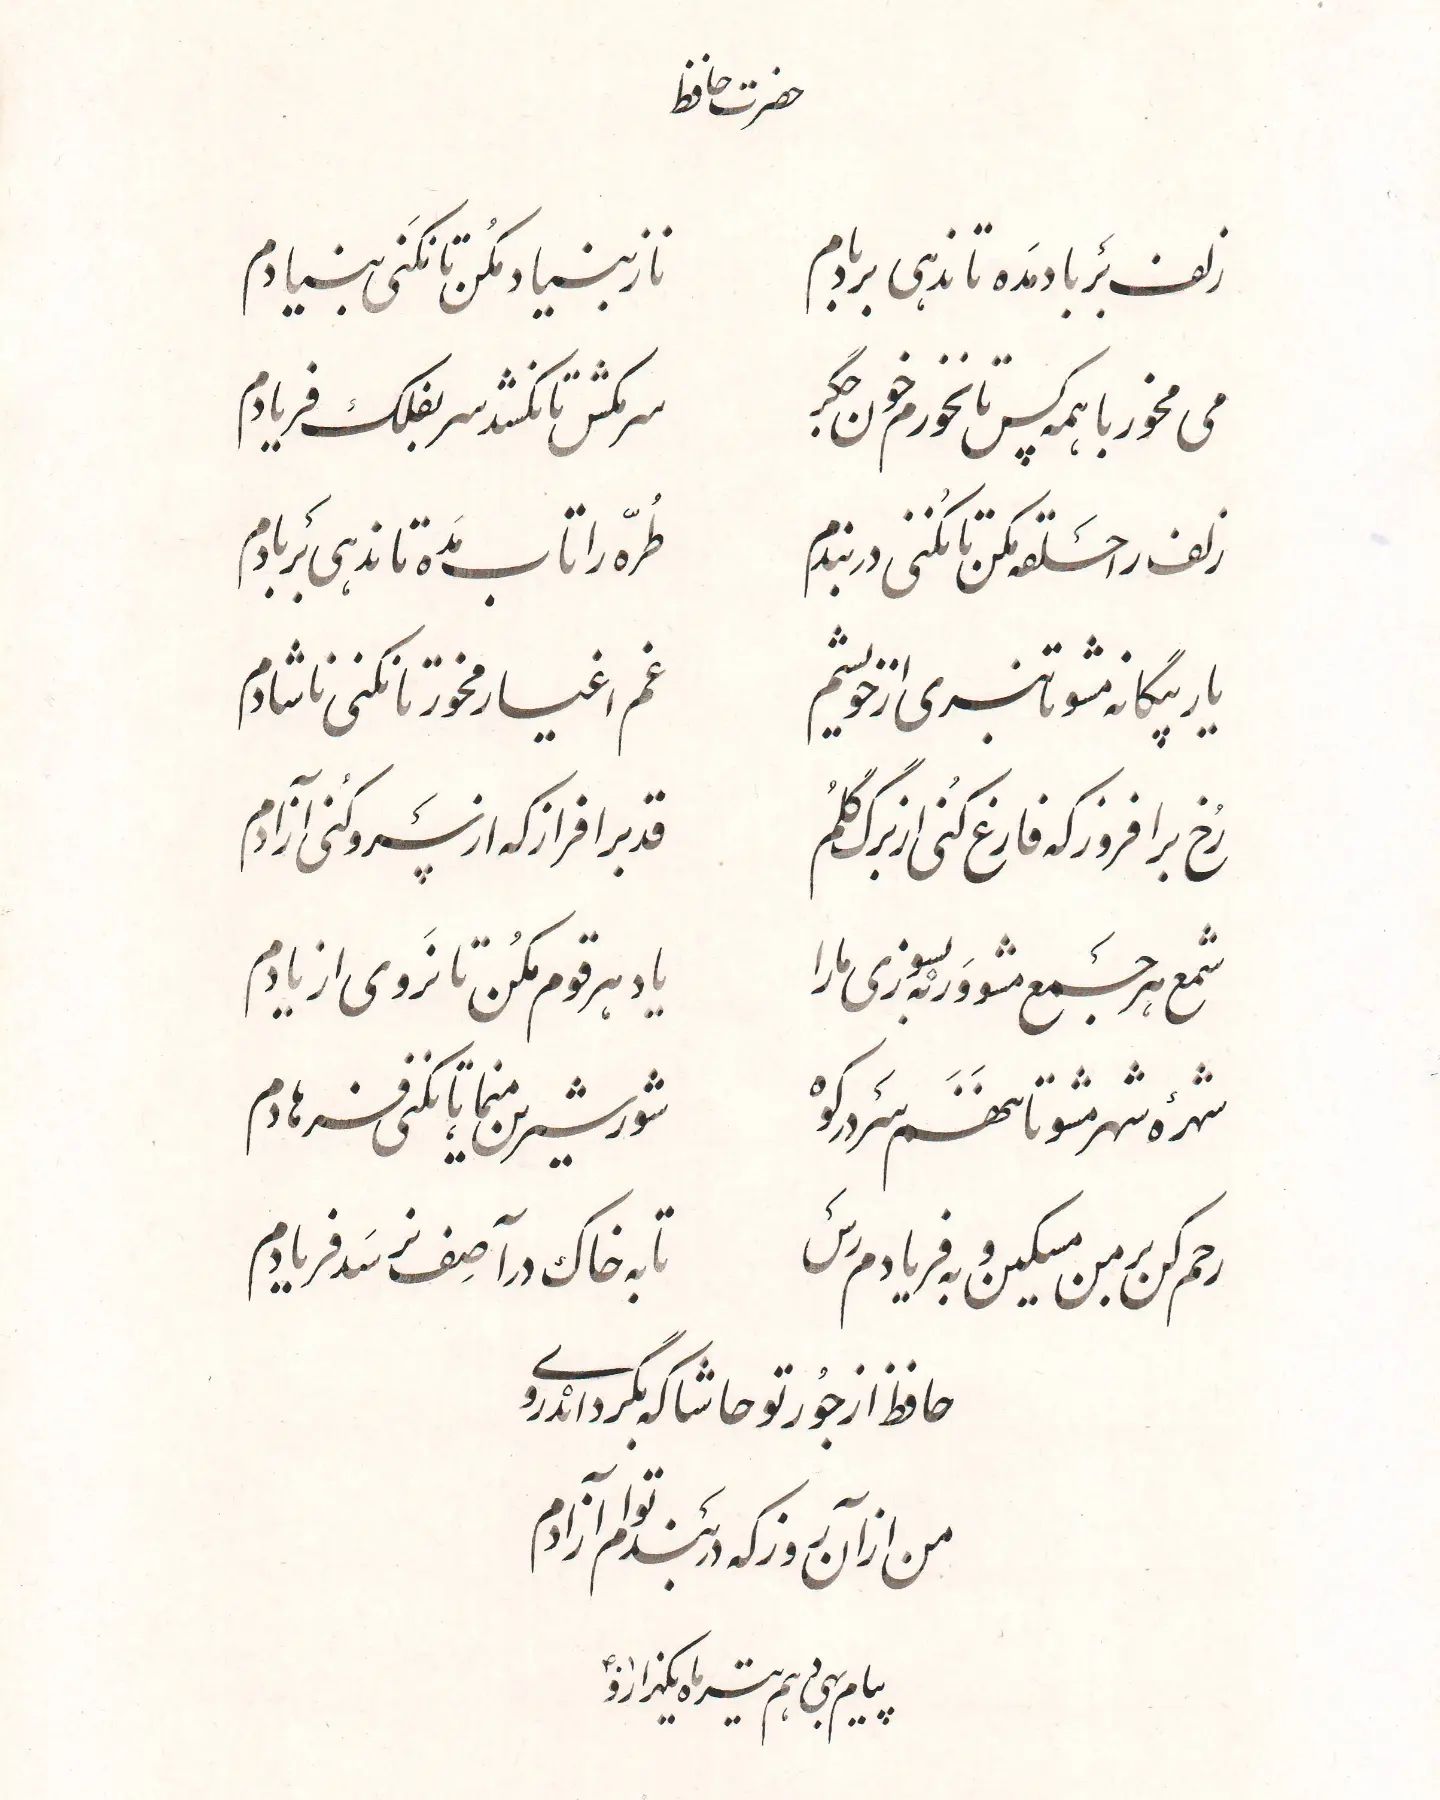 حضرت حافظ
زلف بَر باد مَده تا ندهی بر بادم
ناز بنیاد مکُن تا نکَنی بنیادم
می مخور با همه کس تا نخورم خون جگر
سر مکش تا نکشد سر بفلک فریادم
زلف را حَلقه مکن تا نکُنی در بندم
طُرّه را تاب مَده تا ندهی بَر بادم
یار بیگانه مشو تا نبری از خویشم
غم اغیار مخور تا نکنی ناشادم
رُخ برافروز که فارغ کُنی از برگ گلُم
قد برافراز که از سَرو کُنی آزادم
شمع هر جَمع مشو وَرْنه بسوزی مارا
یاد هر قوم مکُن تا نَروی از یادم
شهرهٔ شهر مشو تا ننهَم سَر در کوه
شور شیرین منما تا نکنی فرهادم
رحم کن بر من مسکین و به فریادم رَس
تا به خاک در آصِف نرسَد فریادم
حافظ از جُور تو حاشا که بگرداند روی
من از آن روز که در بَند توام آزادم
پیام بهی دهم تیر ماه